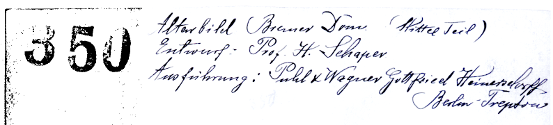 350
Altarbild Bremer Dom (Mittel Teil)
Entwurf - Prof. H. Schaper
Ausführung: Puhl & Wagner Gottfried Heinersdorff
Berlin-Treptow